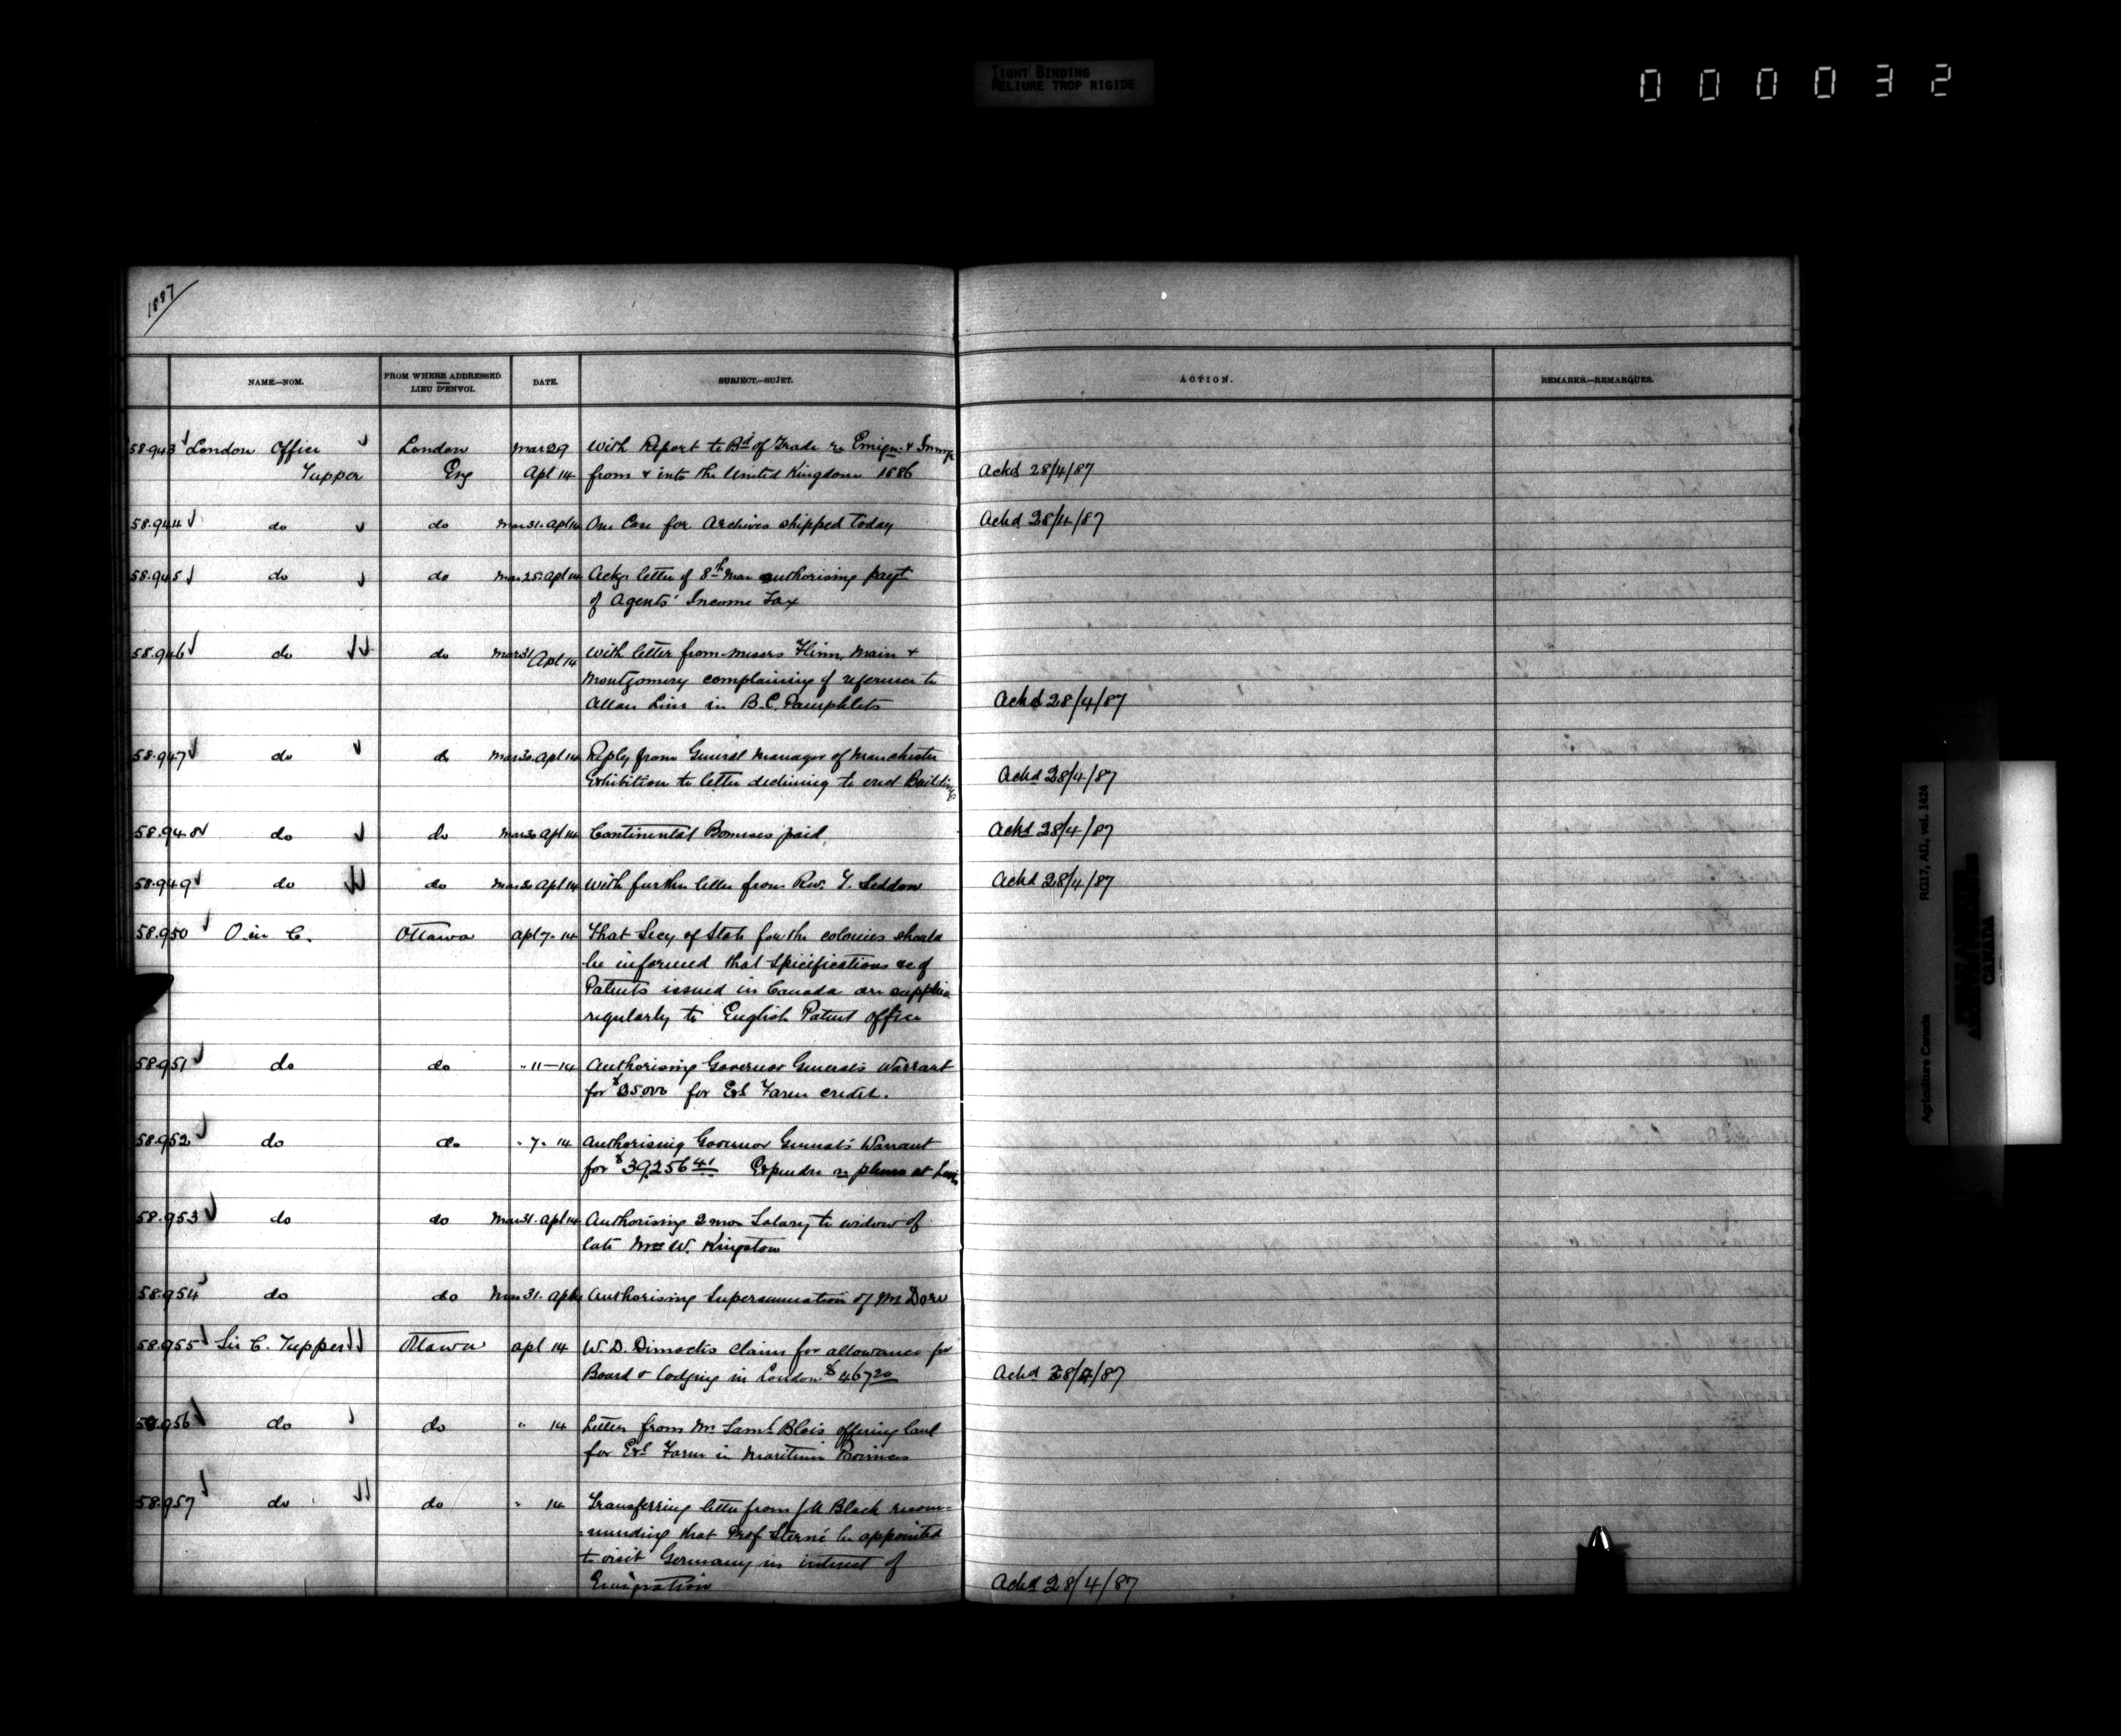 TIGHT BINDING
RELIURE TROP RIGIDE
000032
1887
NAME.—NOM.
FROM WHERE ADDRESSED
LIEU D'ENVOI.
DATE.
SUBJECT.—SUJET.
ACTION.
REMARKS.—REMARQUES.
58.943 London Office London Mar 29 With Report to Bd of Trade re Emign &
Tupper Eng Apl 14 from & into the United Kingdom 1886 Ackd 28/4/87
58.944 do do Mar 31. Apl 14 One Case for Archives shipped today Ackd 28/4/87
58.945 do do Mar 25. Apl 14 Ackg letter of 8th Mar authorising payt
of Agents' Income Tax
58.946 do do Mar 31 Apl 14 With letter from Messrs Flinn, Main &
Montgomery complaining of reference to
Allan Line in B.C. Pamphlets Ackd 28/4/87
58.947 do do Mar 30. Apl 14 Reply from General Manager of Manchester
Exhibition to letter declining to erect Building Ackd 28/4/87
58.948 do do Mar 30 Apl 14 Continental Bonuses paid Ackd 28/4/87
58.949 do do Mar 30 Apl 14 With further letter from Rev. Seddon Ackd 28/4/87
58.950 O. in C. Ottawa Apl 7. 14 That Secy of State for the colonies should
be informed that Specifications &c of
Patents issued in Canada are supplied
regularly to English Patent Office
58.951 do do " 11–14 Authorising Governor General's Warrant
for for Exl Farm credit.
58.952 do do " 7. 14 Authorising Governor General's Warrant
for $39256 41 Expendre re at
58.953 do do Mar 31. Apl 14 Authorising 2 mos Salary to widow of
late W. Kingston
58.954 do do Mar 31. Apl 14 Authorising Superannuation of Mr
58.955 Sir C. Tupper Ottawa Apl 14 W. D. Dimock's claim for allowance for
Board & lodging in London $467 20 Ackd 28/4/87
58.956 do do " 14 Letter from Mr Saml Blois offering land
for Exl Farm in Maritime Provinces
58.957 do do " 14 Transferring letter from Black recom=
=mending that Prof Sterne be appointed
to visit Germany in interest of
Emigration Ackd 28/4/87
Agriculture Canada RG17, AI1, vol. 1424
CANADA